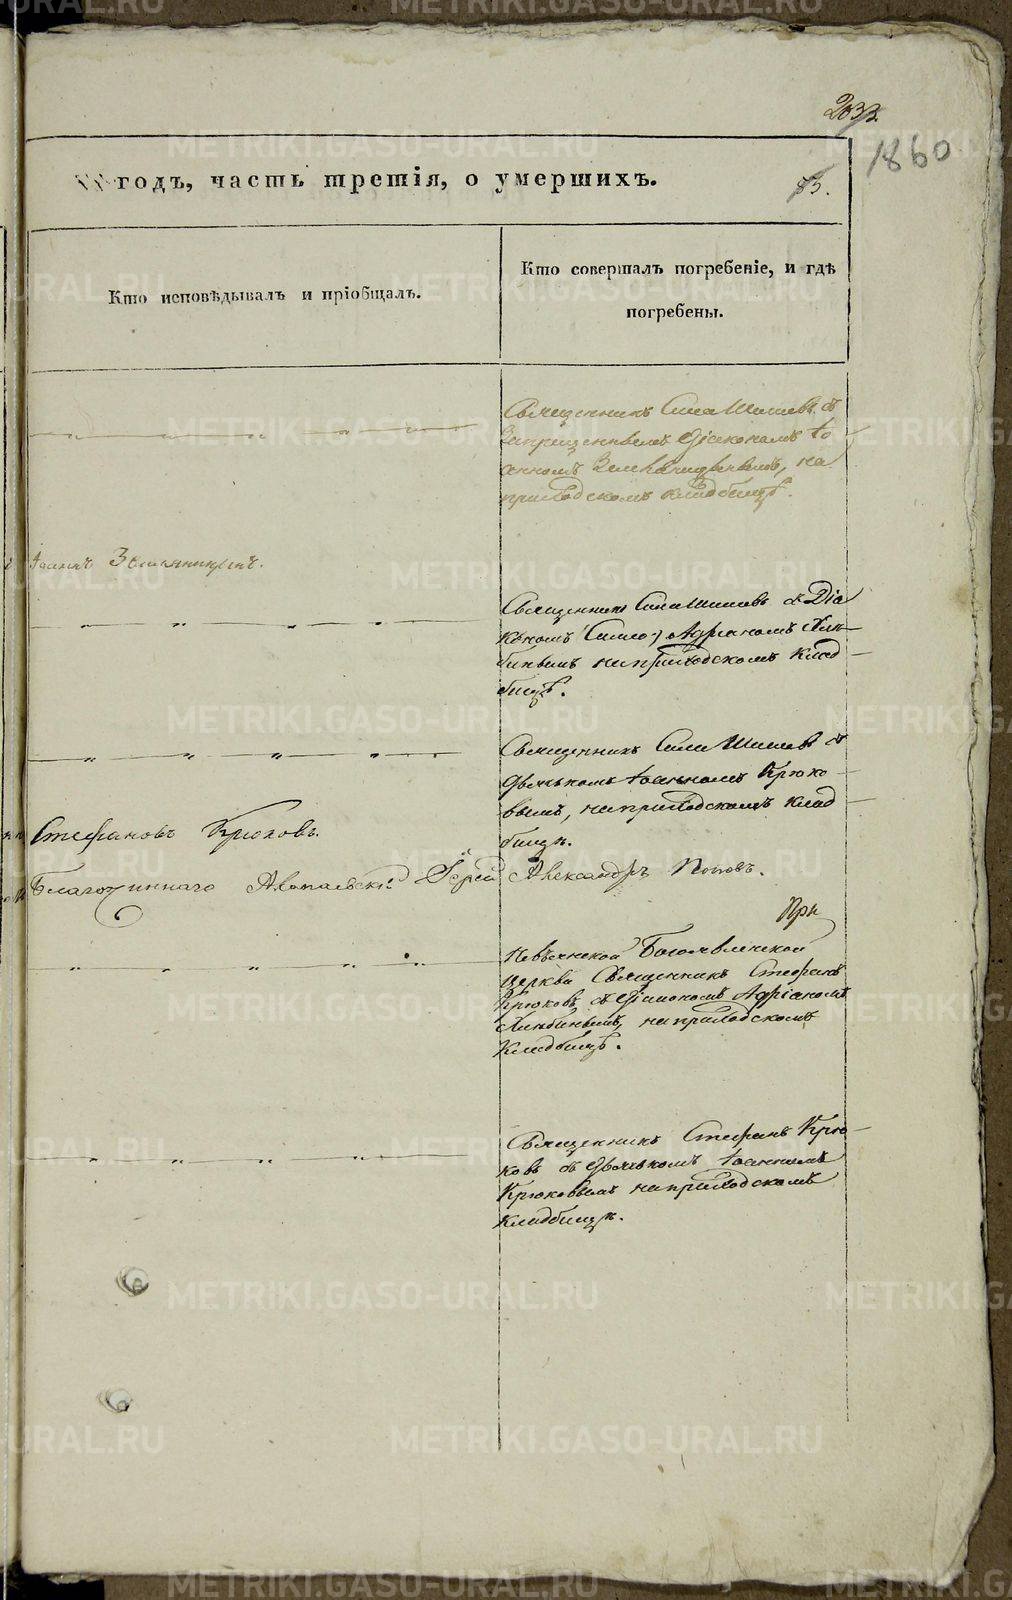 2033.
1860
годъ, часть третія, о умершихъ.
83.
Кто исповѣдывалъ и пріобщалъ.
Кто совершалъ погребеніе, и гдѣ
погребены.
Священникъ Сила Шишевъ съ
Запрещеннымъ Діакономъ Іо
анномъ на
приходскомъ кладбищѣ.
Іоаннъ
Священникъ Сила Шишевъ съ Діа
кономъ Адріаномъ
на приходскомъ клад
бищѣ.
Священникъ Сила Шишевъ съ
дьячкомъ Іоанномъ Крюко
вымъ, на приходскомъ клад
бищѣ.
Стефановъ Крюковъ.
Благочиннаго Іерей Александръ Поповъ.
При
Невьянской Богоявленской
церкви Священникъ Стефанъ
Крюковъ съ Діакономъ Адріаномъ
на приходскомъ
кладбищѣ.
Священникъ Стефанъ Крю
ковъ съ дьячкомъ Іоанномъ
Крюковымъ на приходскомъ
кладбищѣ.
METRIKI.GASO-URAL.RU